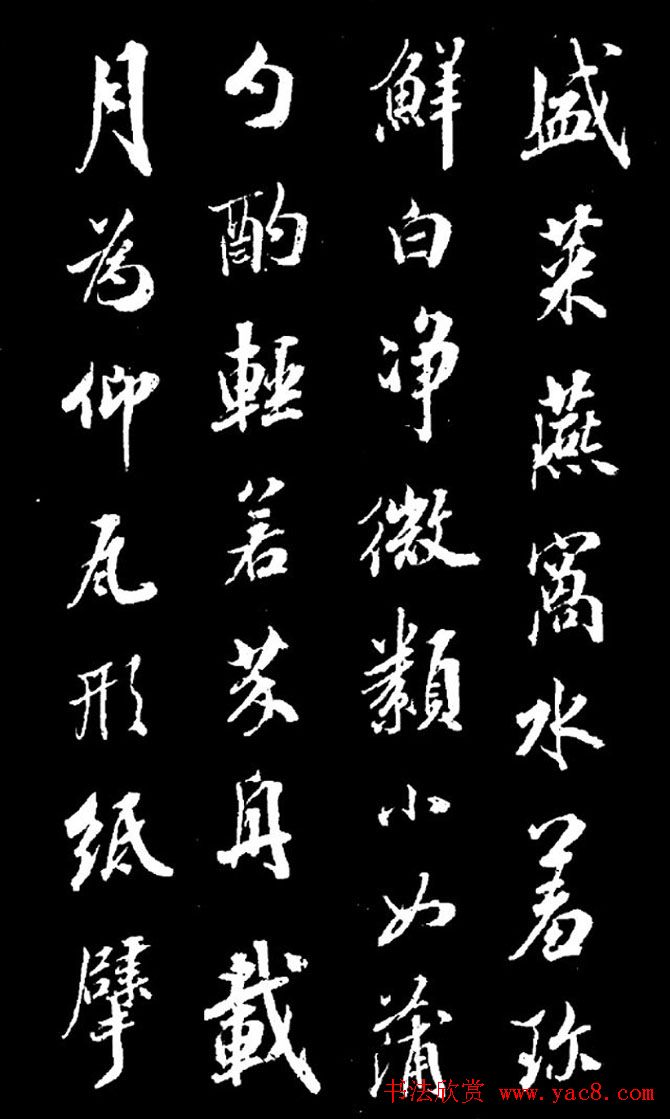 盛菜燕窩水羞珎
鮮白净微纇小如蒲
勺酌輕著芥舟載
月為仰瓦形紙擘
书法欣赏 www.yac8.com